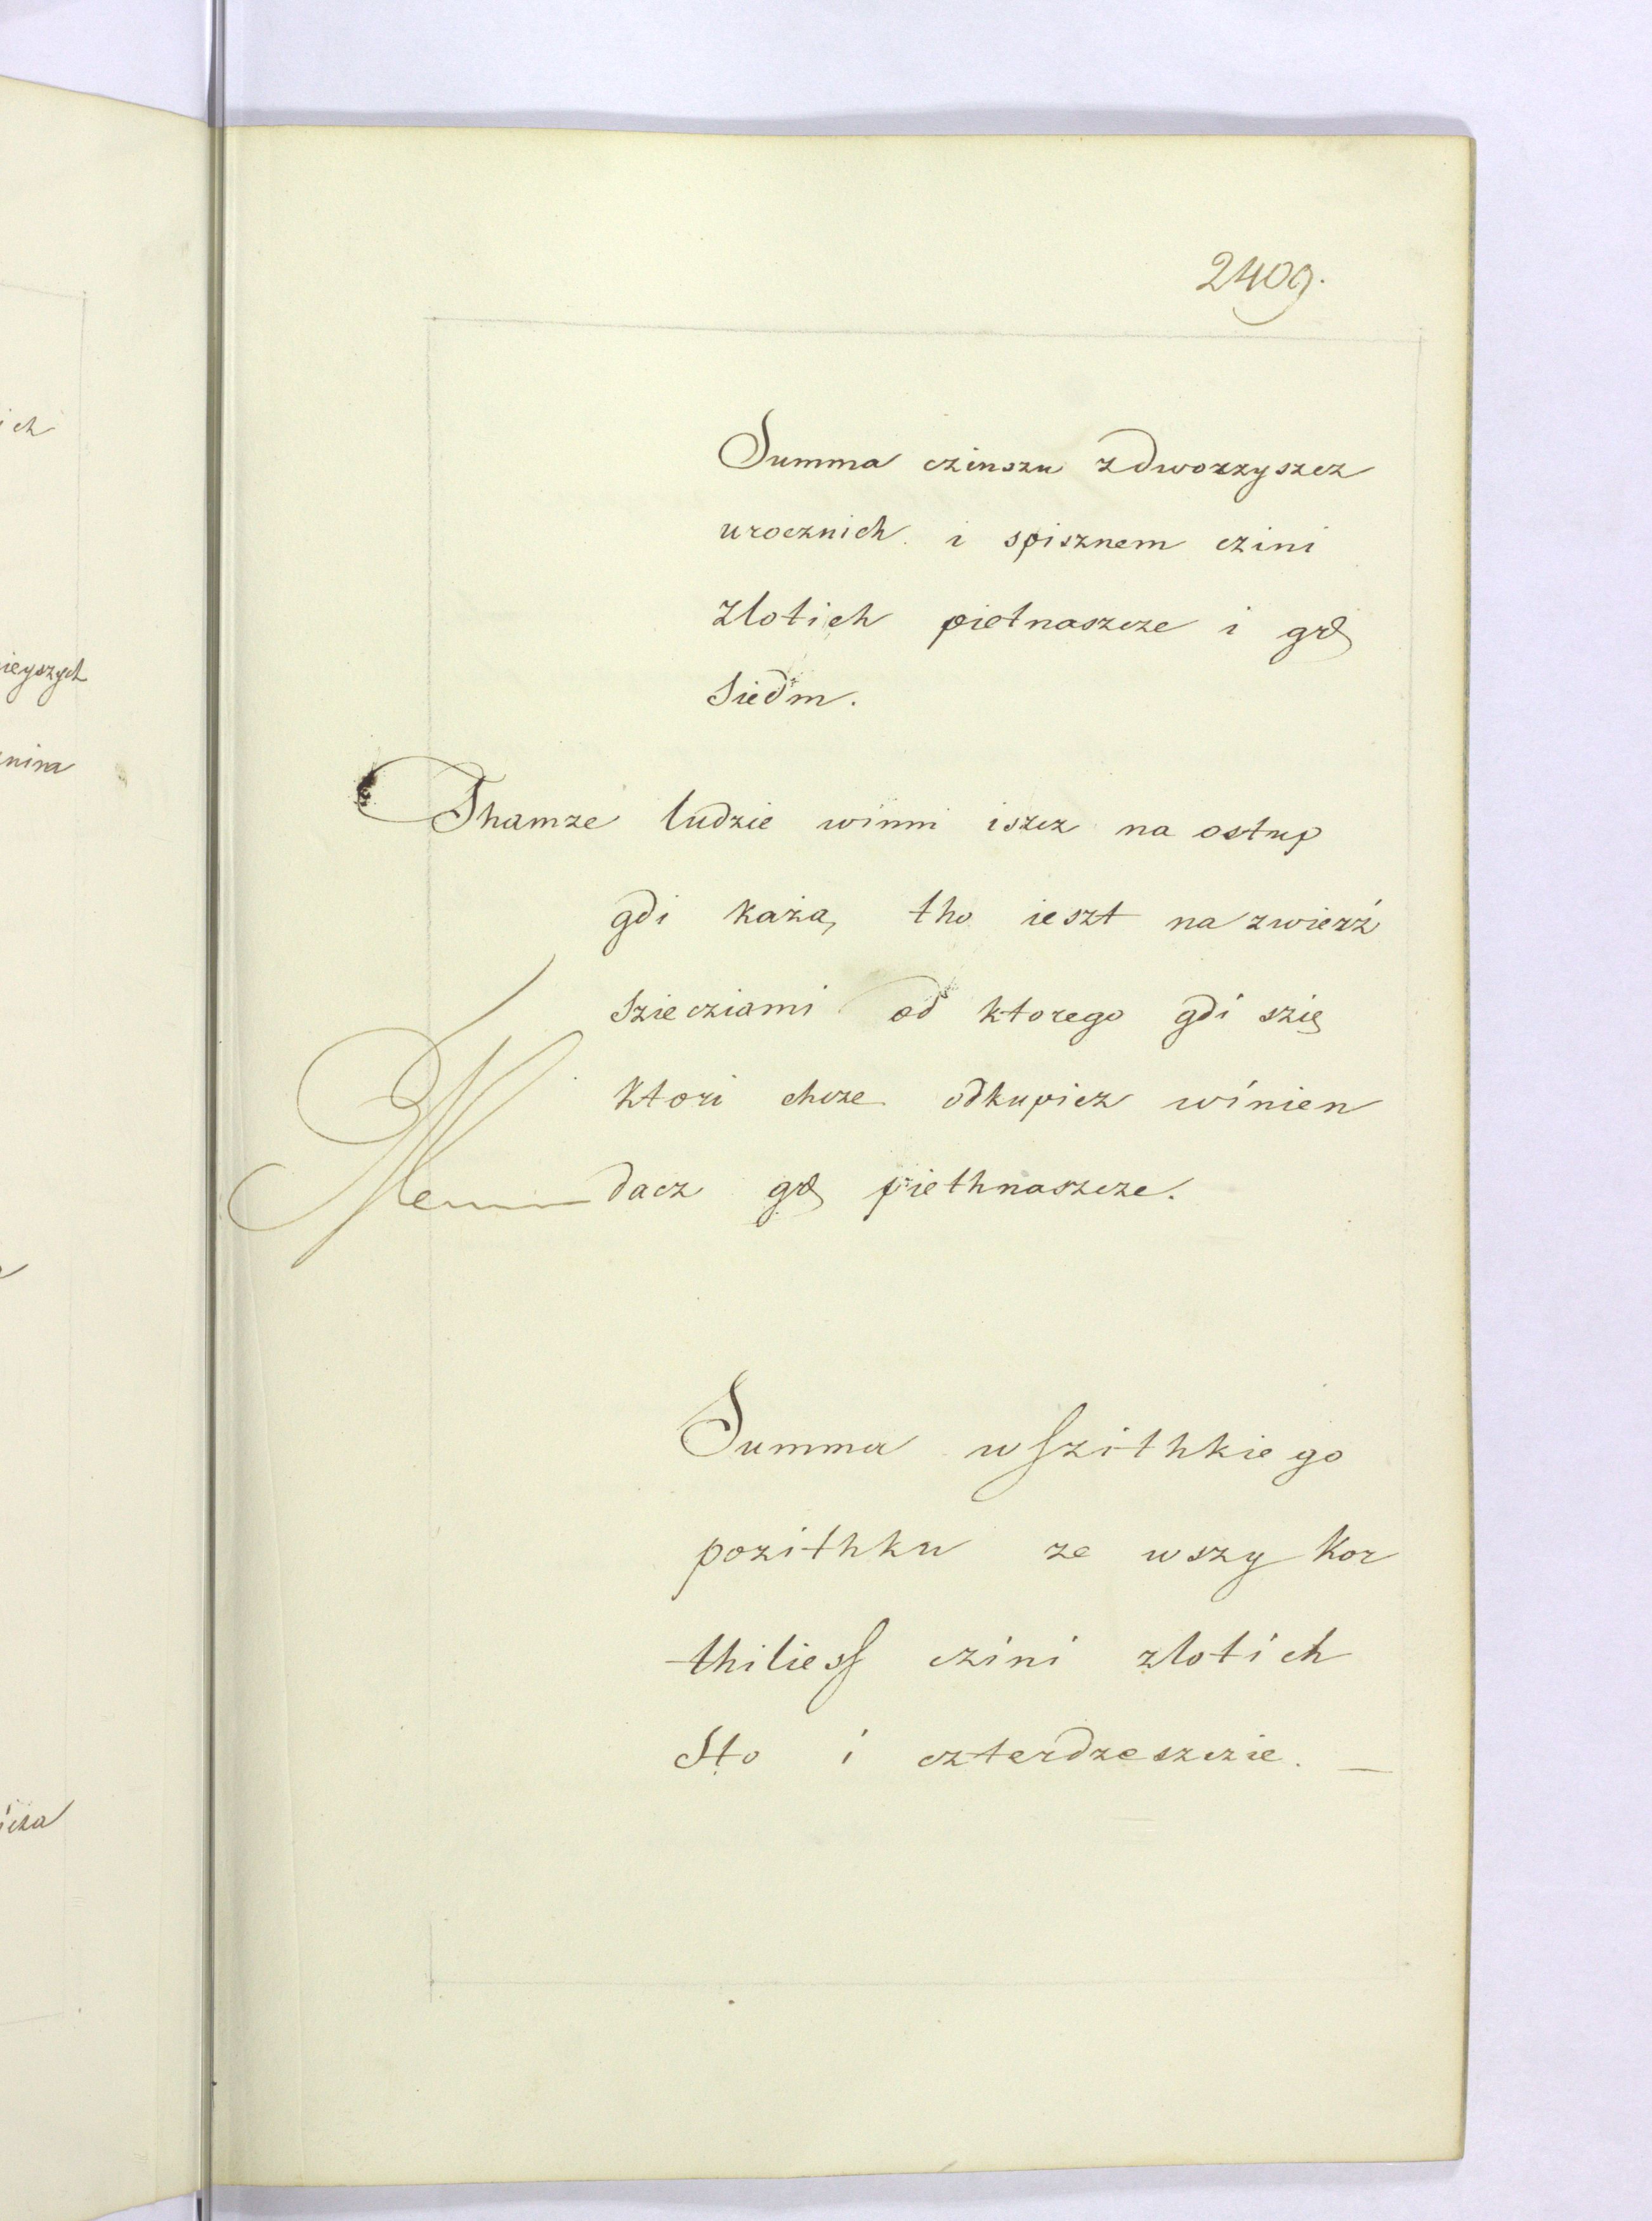 2409.
Summa czinszu zdworzyszcz
urocznich i spisznem czini
Zlotich pietnaszcze i gr
Siedm.
Thamze ludzie winni iszcz na ostup
gdi każą tho ieszt na zwierź
Sziecziami od ktorego gdi szię
ktori chcze odkupicz winien
dacz gr piethnaszcze.
Summa wszithkiego
pozithku ze wszy Kor
thiliess czini zlotich
Sto i czterdzeszczie. —
ich
ieyszych